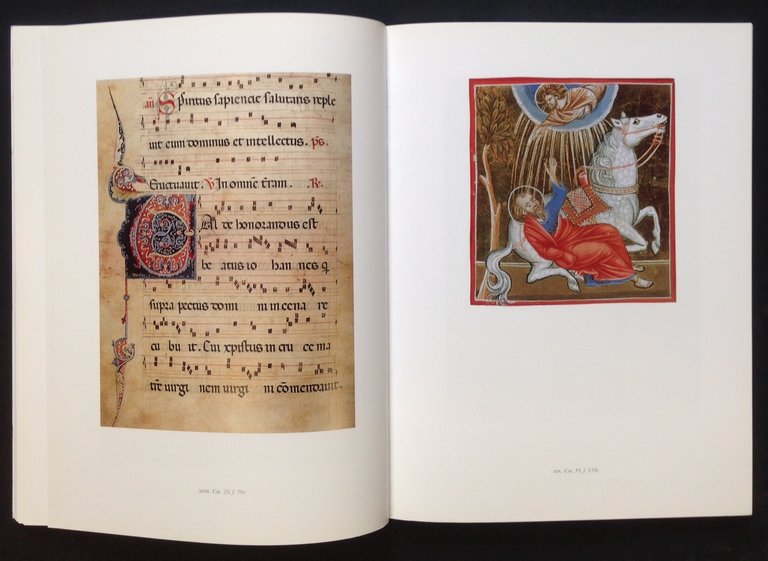 an Spiritus sapiencie salutaris reple
uit eum dominus et intellectus. ps.
Eructauit. V In omnē t̄ram. R.
Val de honorandus est
be atus io han nes q
supra pectus domi ni in cena re
cu bu it. Cui xpistus in cru ce ma
trē uirgi nem uirgi ni cōmendauit.
XVIII. Cat. 23, f. 79v.
XIX. Cat. 33, f. 133v.